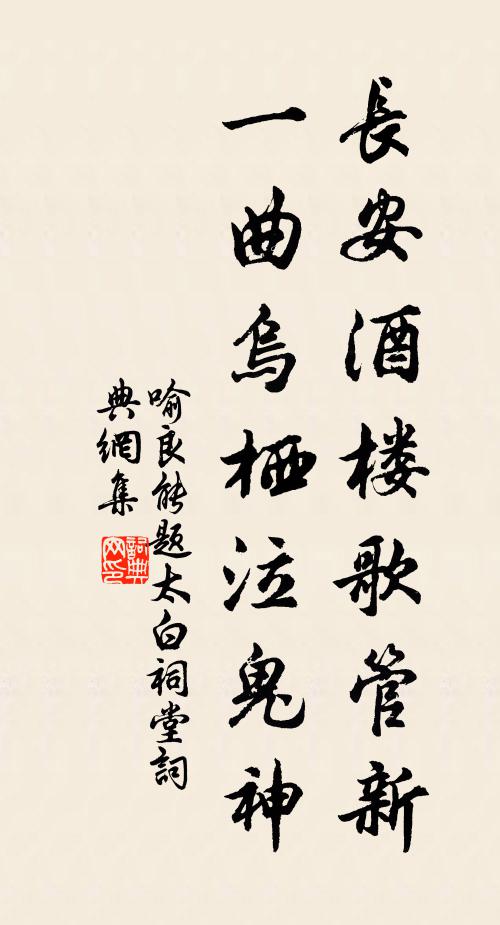 長安酒楼歌管新
一曲烏栖泣鬼神
喻良能题太白祠堂詞
典網集
詞典網印